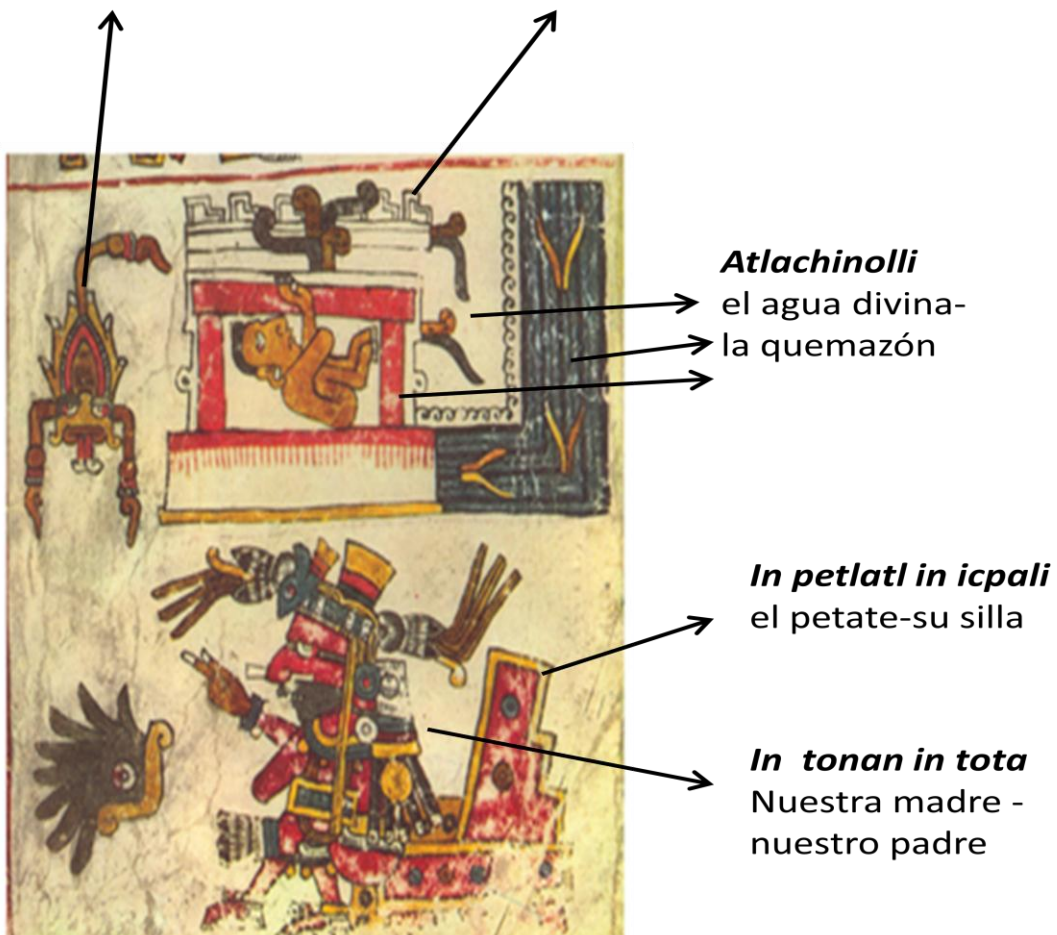 Atlachinolli
el agua divina-
la quemazón
In petlatl in icpali
el petate-su silla
In tonan in tota
Nuestra madre -
nuestro padre